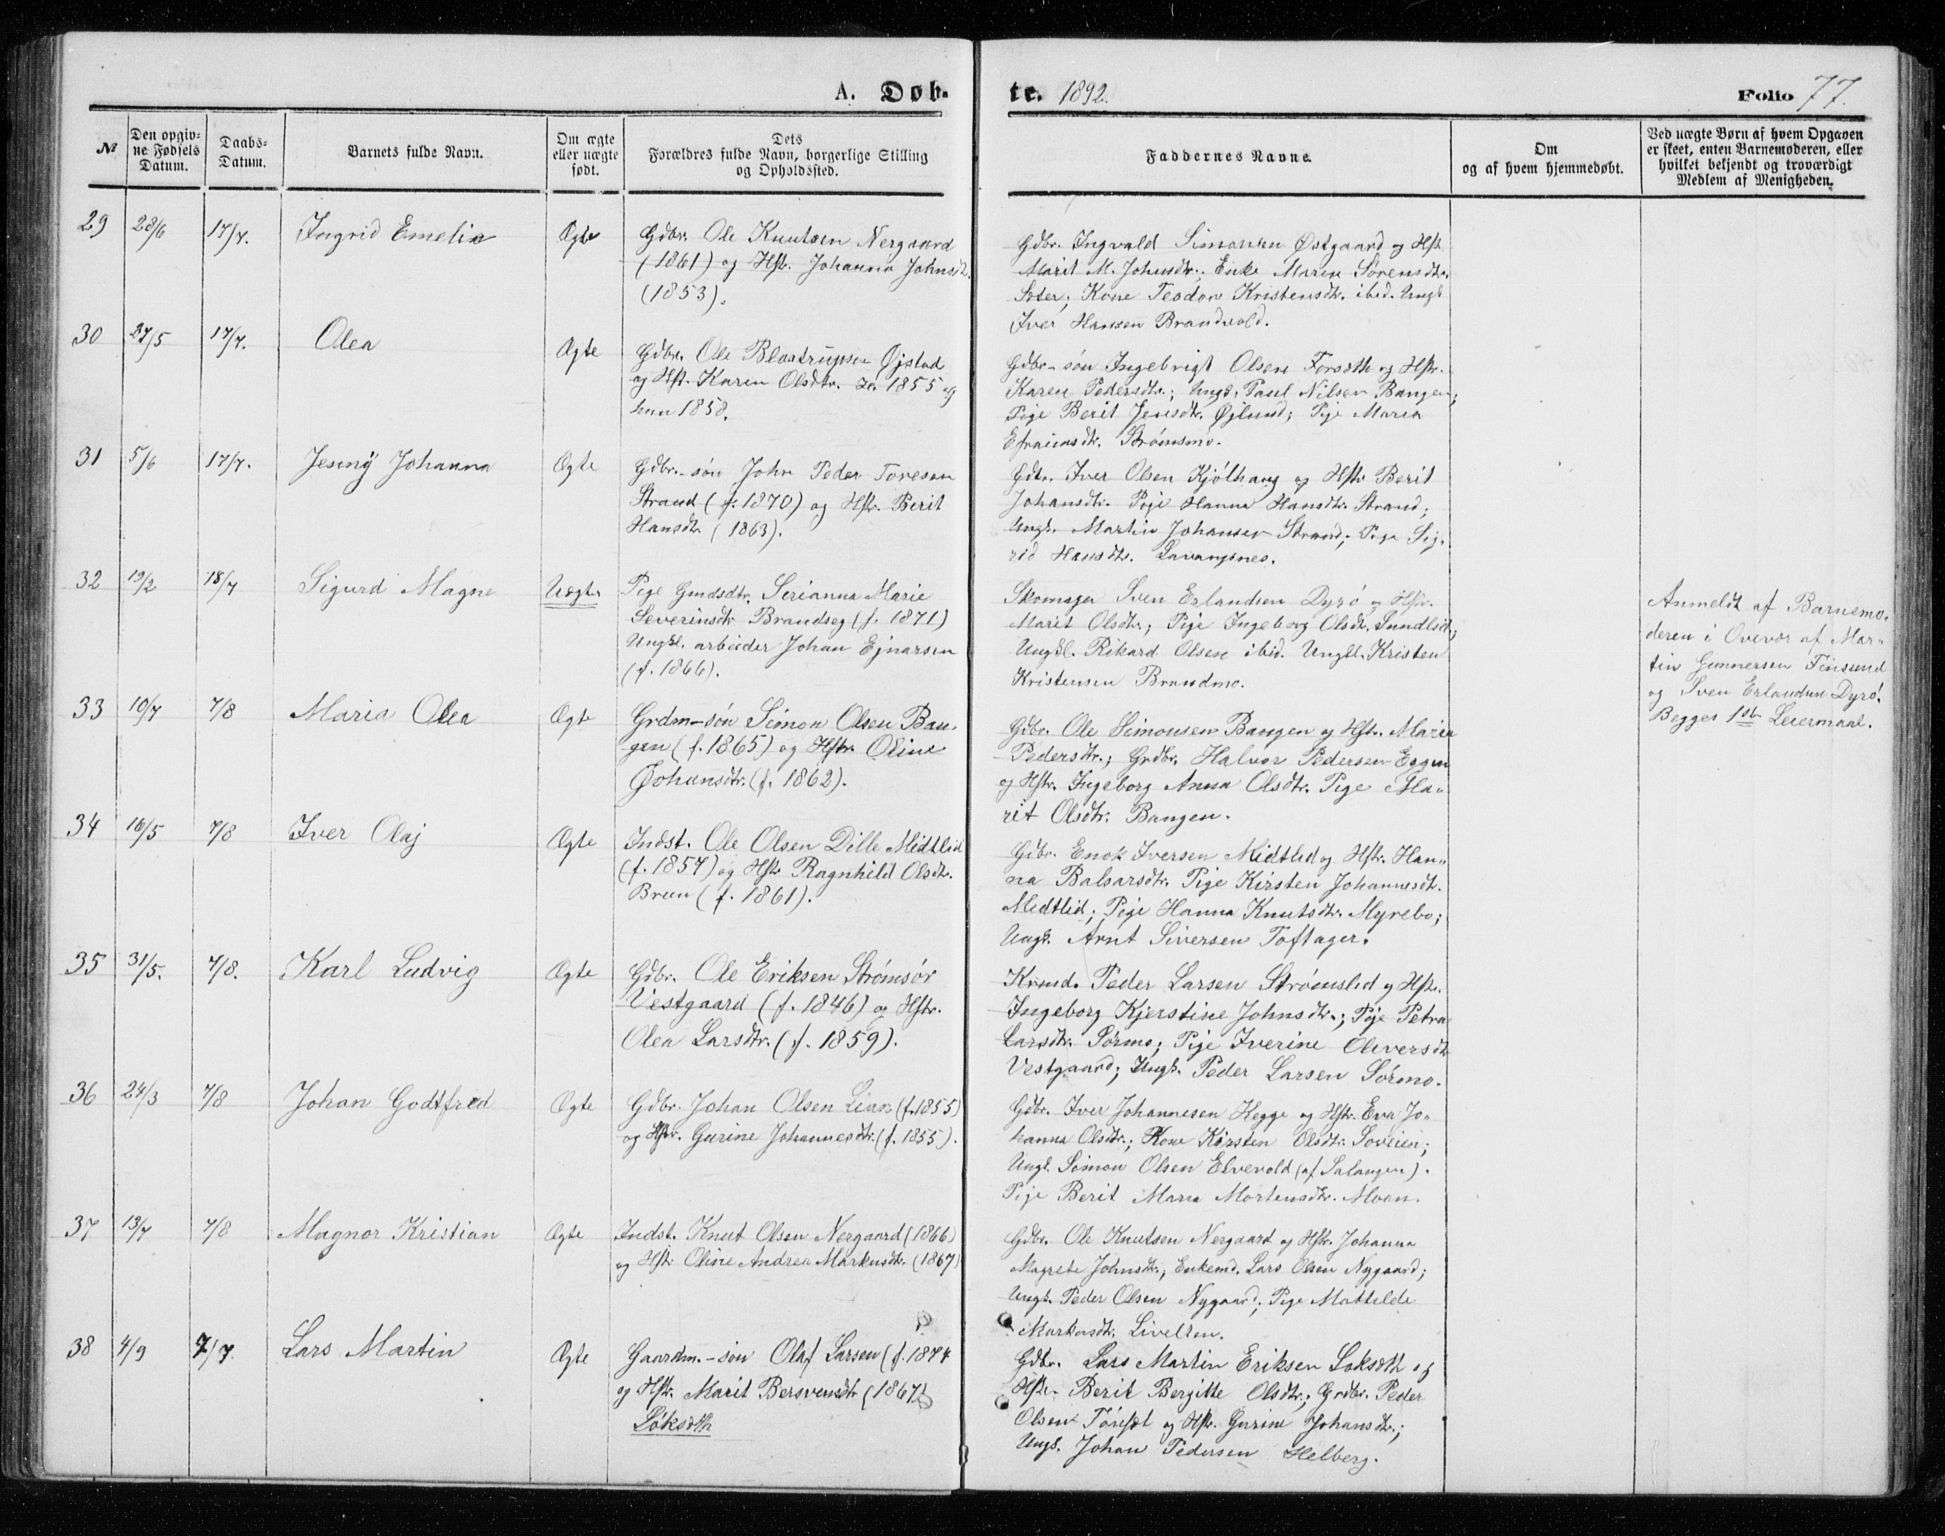 A. Døb-
te. 1892. Folio 77.
№
Den opgiv-
ne Fødsels
Datum.
Daabs-
Datum.
Barnets fulde Navn.
Om ægte
eller uægte
født.
Dets
Forældres fulde Navn, borgerlige Stilling
og Opholdssted.
Faddernes Navne.
Om
og af hvem hjemmedøbt.
Ved uægte Børn af hvem Opgaven
er skeet, enten Barnemoderen, eller
hvilket bekjendt og troværdigt
Medlem af Menigheden.
29 28/6 17/7. Ingrid Emelie Ægte
Gdbr. Ole Knutsen Nergaard
(1861) og Hst. Johanna Johnsdt.
(1853).
Gdbr. Ingvald Simonsen Østgaard og Hst.
Marit M. Johnsdtr. Enke Maren Sørensdtr.
Sæter; Kone Teodor Kristensdtr. ibid. Ungk
Iver Hansen Brandvold.
30 27/5 17/7. Olea Ægte
Gdbr. Ole Blostrupsen Øjstad
og Hst. Karen Olsdtr. 1855 og
hun 1858.
Gdbr-søn Ingebrigt Olsen Forseth og Hstr.
Karen Pedersdtr.; Ungk. Paul Nilsen Bangen;
Pige Berit Jensdtr. Øjlund; Pige Maria
Efraimsdtr. Strømsmo.
31 5/6 17/7. Jenny Johanna Ægte
Gdbr.-søn John Peder Toresen
Strand (f. 1870) og Hstr. Berit
Hansdtr. (1863).
Gdbr. Iver Olsen Kjølhaug og Hstr Berit
Johansdtr. Pige Hanna Hansdtr. Strand;
Ungk. Martin Johansen Strand; Pige Sig-
rid Hansdtr. Lavangsnes.
32 19/2 18/7 Sigurd Magne Uægte
Pige Gmdsdtr. Serianna Marie
Severinsdtr Brandseg (f. 1871)
Ungkl. arbeider Johan Ejnarsen
(f. 1866).
Skomager Sven Erlandsen Dyrø og Hstr.
Marit Olsdtr.; Pige Ingeborg Olsdtr. Sundlid;
Ungkl. Rikard Olsen ibid. Ungkl. Kristen
Kristensen Brandmo.
Anmeldt af Barnemo-
deren i Overvær af Mar-
tin Gunnersen Finsund
og Sven Erlandsen Dyrø.
Begges 1ste Leiermaal.
33 10/7 7/8 Maria Olea Ægte
Grdm-søn Simon Olsen Ban-
gen (f. 1865) og Hstr. Oline
Johansdtr. (f. 1862).
Gdbr. Ole Simonsen Bangen og Hstr. Maria
Pedersdtr.; Grdbr. Halvor Pedersen Eggen
og Hstr. Ingeborg Anna Olsdtr. Pige Ma-
rit Olsdtr. Bangen.
34 16/5 7/8 Iver Olaj Ægte
Indst. Ole Olsen Dille Midtlid
(f. 1857) og Hstr Ragnhild Olsdtr.
Breen (f. 1861).
Gdbr. Enok Iversen Midtlid og Hstr. Han-
na Balsarsdtr. Pige Kirsten Johannesdtr.
Midtlid; Pige Hanna Knutsdtr. Myrebo;
Ungk. Arnt Siversen Toftager.
35 31/5. 7/8. Karl Ludvig Ægte
Gdbr. Ole Eriksen Strømsør
Vestgaard (f. 1846) og Hstr.
Olea Larsdtr. (f. 1859).
Krmd. Peder Larsen Strømslid og Hstr.
Ingeborg Kjerstine Johnsdtr.; Pige Petra
Larsdtr. Sørmo; Pige Iverine Oliversdtr
Vestgaard; Ungk. Peder Larsen Sørmo.
36 24/3 7/8 Johan Godtfred Ægte
Gdbr. Johan Olsen Lian (f. 1855)
og Hstr. Gurine Johannesdtr. (f. 1855).
Gdbr. Iver Johannesen Hegge og Hstr. Eva Jo-
hanna Olsdtr.; Kone Kirsten Olsdtr. Soveien;
Ungk. Simon Olsen Elvevold (af Salangen).
Pige Berit Maria Mortensdtr. Moan.
37 13/7 7/8 Magnor Kristian Ægte
Indst. Knut Olsen Nergaard (1866)
og Hstr Oline Andrea Markusdtr. (1867)
Gdbr. Ole Knutsen Nergaard og Hstr. Johanna
Magrete Johnsdtr.; Enkemd. Lars Olsen Nygaard;
Ungk. Peder Olsen Nygaard; Pige Mathilde
Markusdtr. Livelten.
38 4/9 7/7. Lars Martin Ægte
Gaardm.-søn Olaf Larsen (f. 1874
og Hstr. Marit Bersvensdtr (1867)
Løkseth
Gdbr. Lars Martin Eriksen Løkseth og
Hstr. Berit Bergitte Olsdtr.; Grdbr. Peder
Olsen Foresæt og Hstr. Gurine Johansdtr.;
Ungk. Johan Pedersen Helberg.